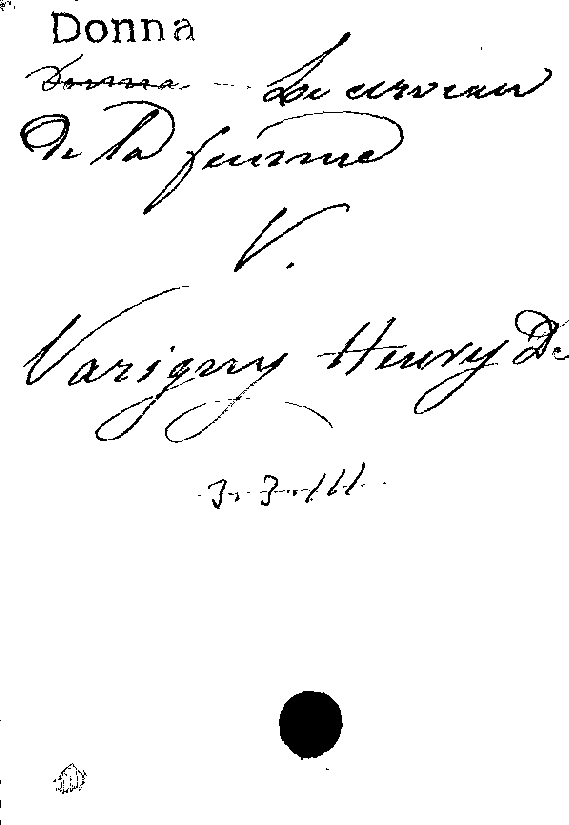 Donna
Donna - Le cerveau
de la femme
V.
Varigny Henry De
3. 3. III